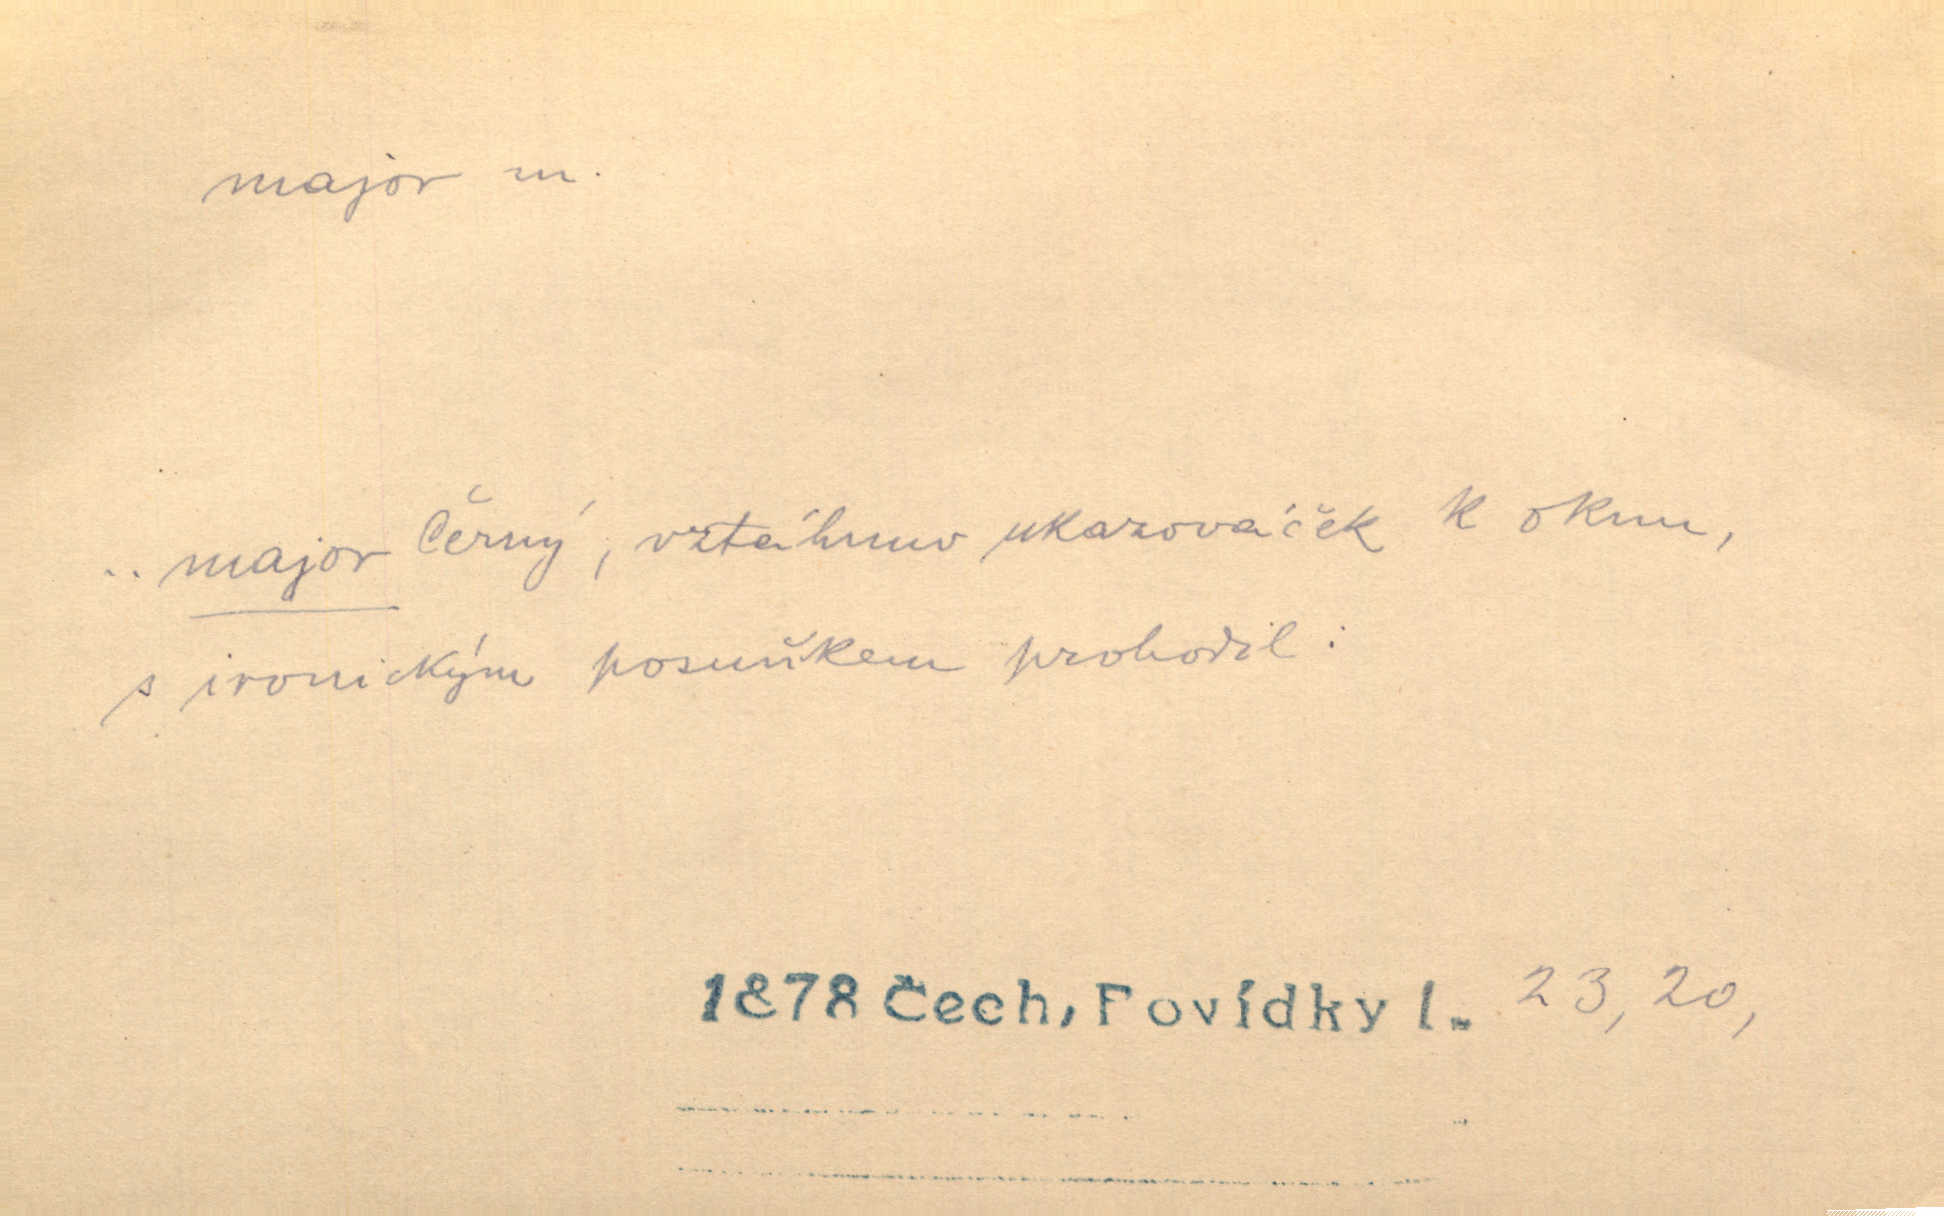 major m.
.. major Černý, vztáhnuv ukazováček k oknu,
s ironickým posuňkem prohodil :
1878 Čech, Povídky I. 23, 20,